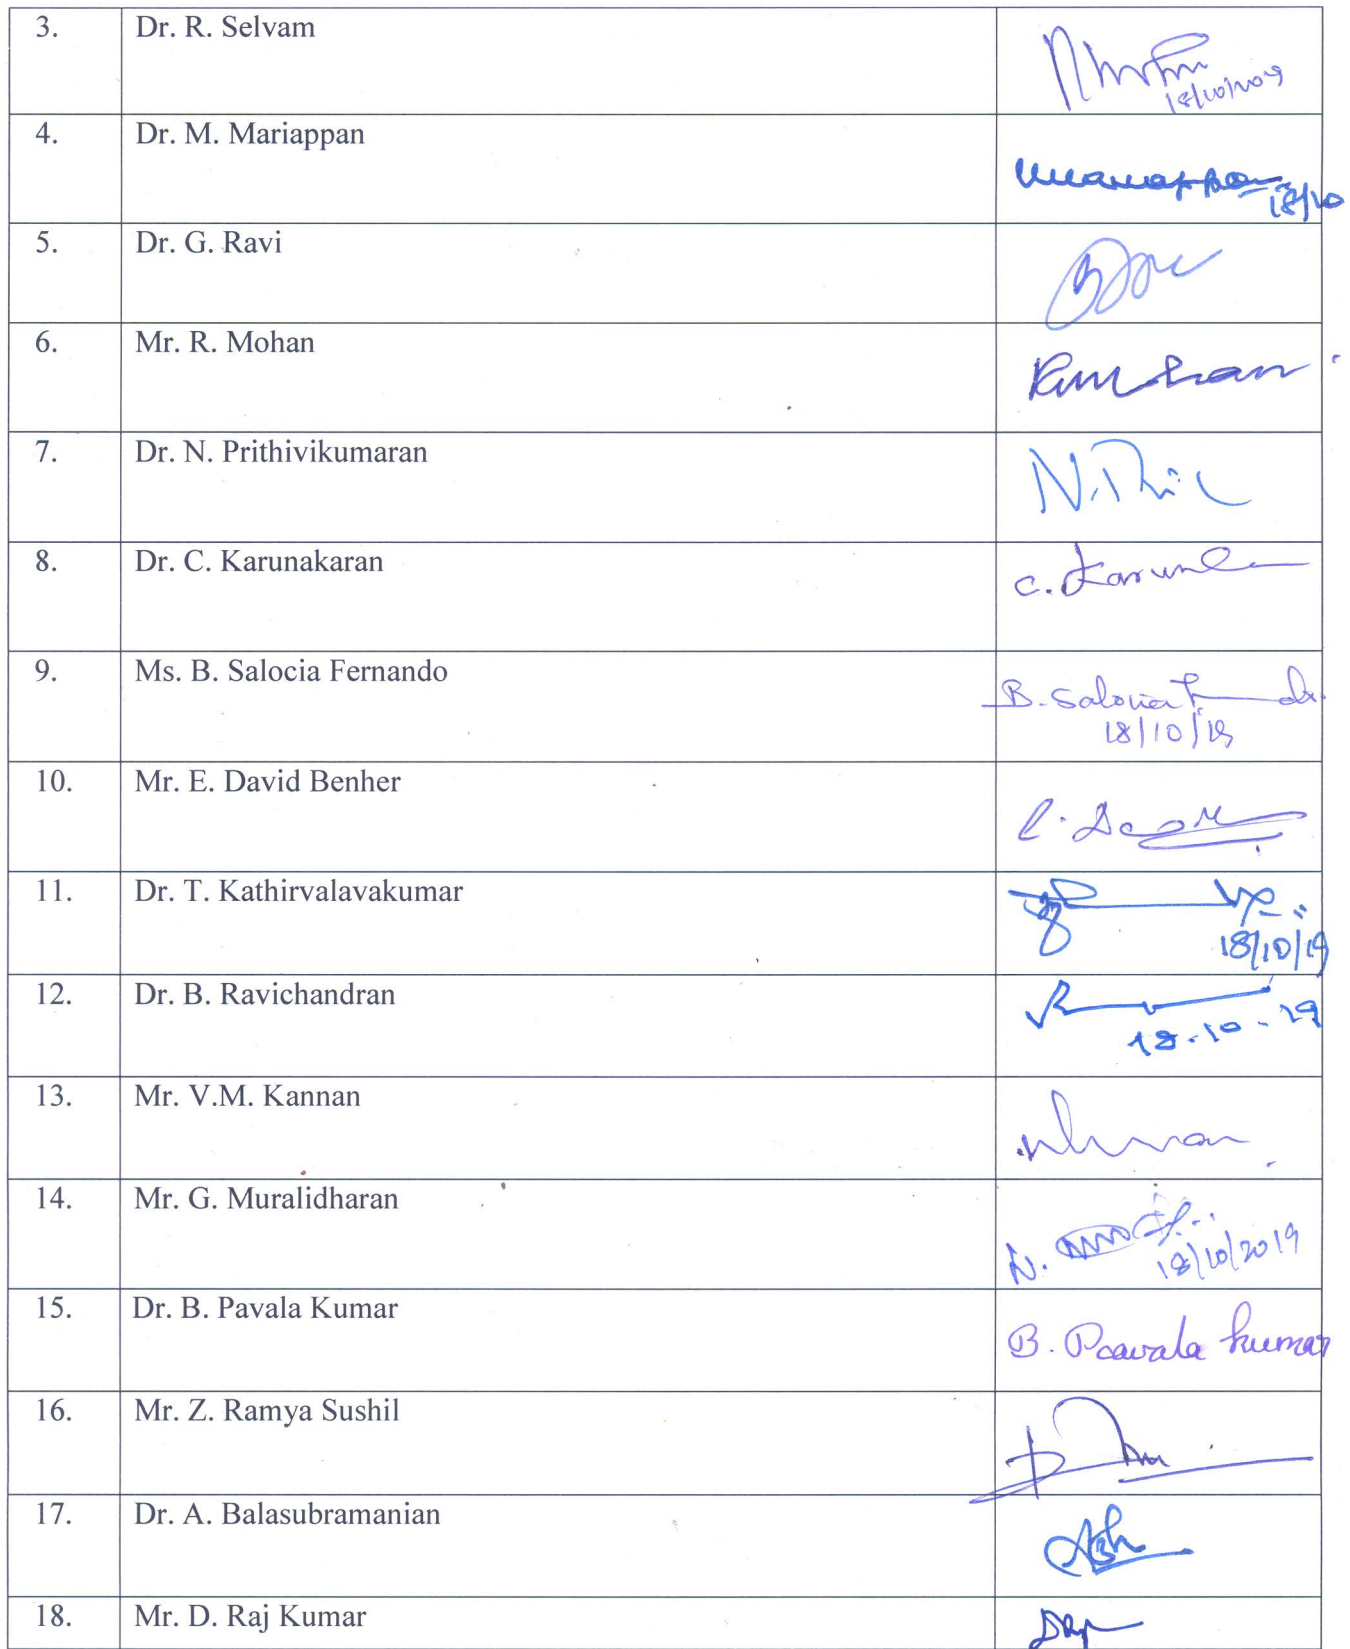 3. Dr. R. Selvam
18/10/2019
4. Dr. M. Mariappan
18/10
5. Dr. G. Ravi
6. Mr. R. Mohan
7. Dr. N. Prithivikumaran
8. Dr. C. Karunakaran
9. Ms. B. Salocia Fernando
B. Salocia
18/10/19
10. Mr. E. David Benher
11. Dr. T. Kathirvalavakumar
18/10/19
12. Dr. B. Ravichandran
18-10-19
13. Mr. V.M. Kannan
14. Mr. G. Muralidharan
18/10/2019
15. Dr. B. Pavala Kumar
B. Paavala kumar
16. Mr. Z. Ramya Sushil
17. Dr. A. Balasubramanian
18. Mr. D. Raj Kumar